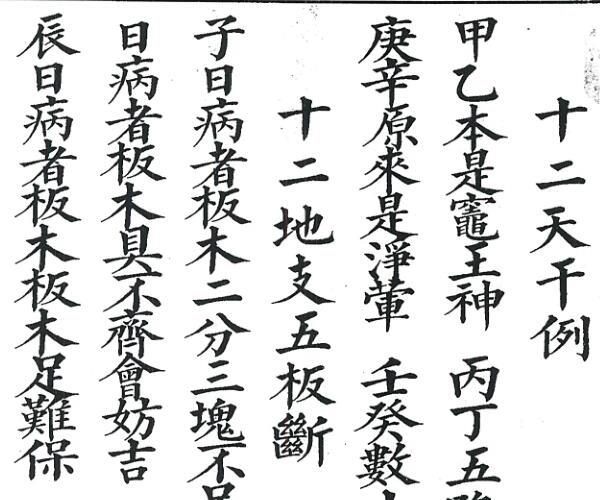 十二天干例
甲乙本是竈王神 丙丁五
庚辛原來是淨葷 壬癸數
十二地支五板斷
子日病者板木二分三塊不足
日病者板木具不齊會妨吉
辰日病者板木板木足難保